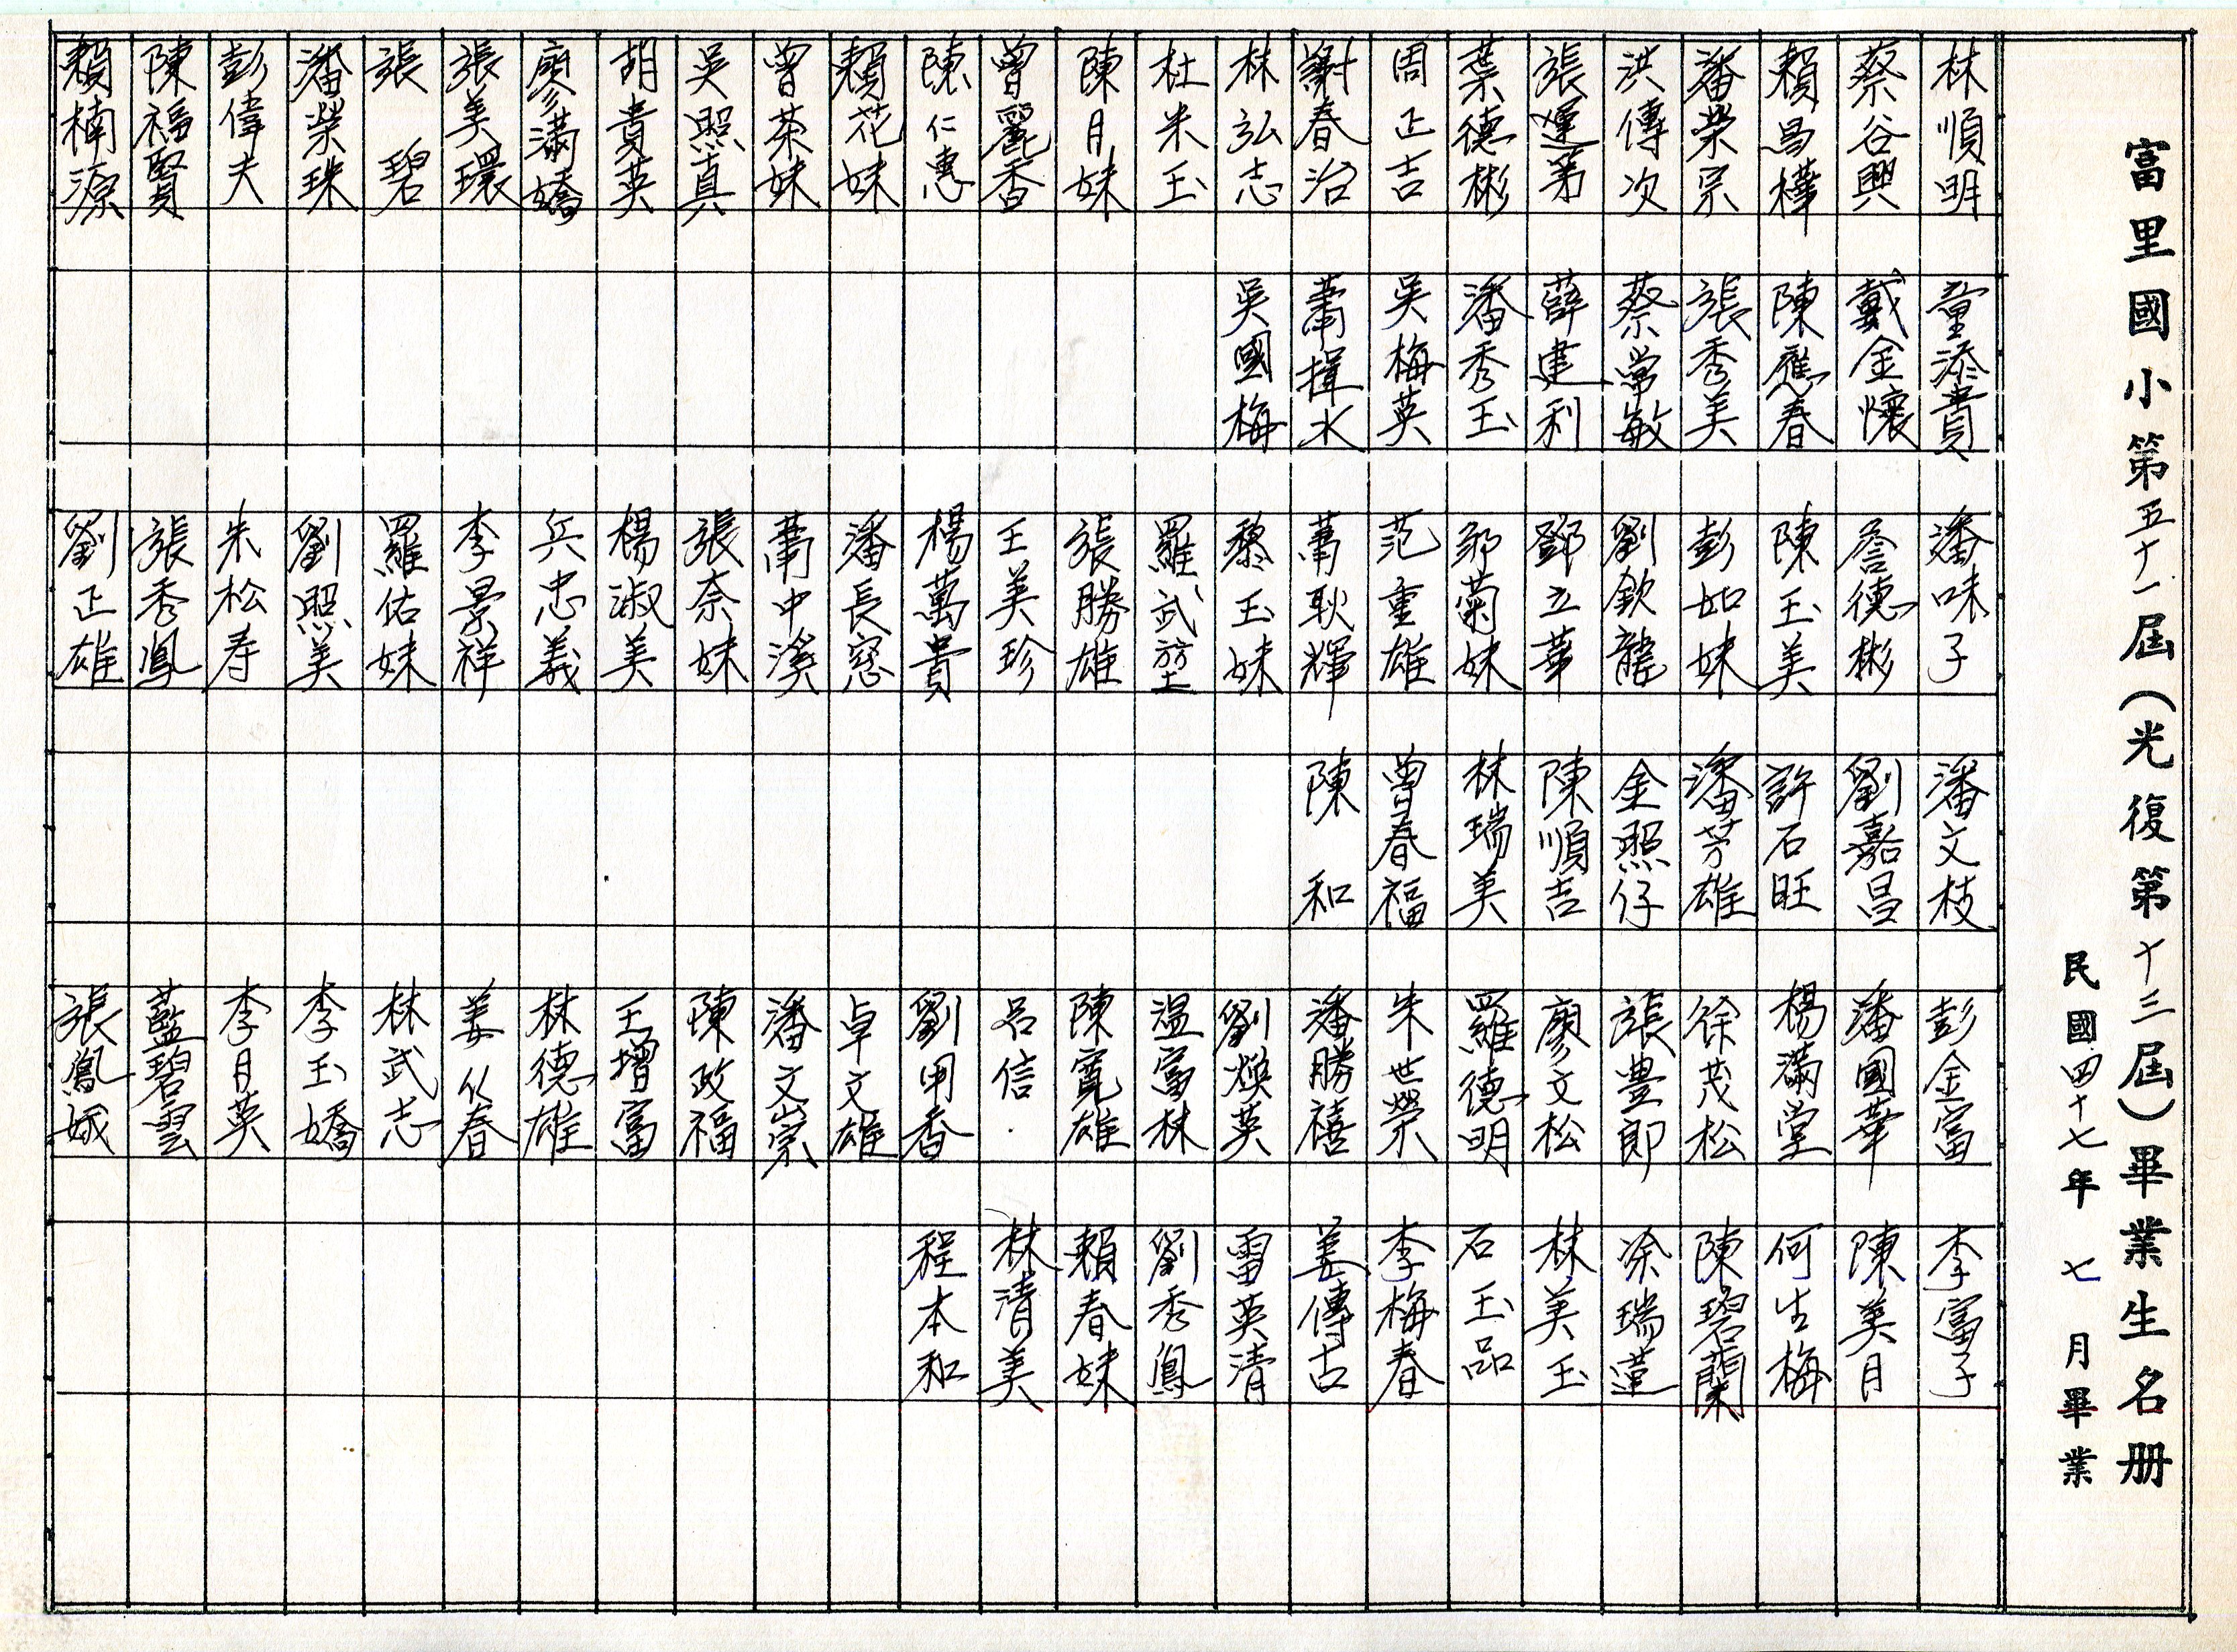 富里國小第五十一屆(光復第十三屆)畢業生名册
民國四十七年七月畢業
林順明
蔡谷興
賴昌樺
潘榮宗
洪傳次
張運弟
葉德彬
周正吉
謝春治
林弘志
杜米玉
陳月妹
曾麗香
陳仁惠
賴花妹
曾茶妹
吳照真
胡貴英
廖滿嬌
張美環
張碧
潘榮珠
彭偉夫
陳福賢
賴楠源
童添貴
戴金懷
陳應春
張秀美
蔡常敏
薛建利
潘秀玉
吳梅英
蕭揮水
吳國梅
潘味子
詹德彬
陳玉美
彭如妹
劉欽龍
鄧立華
鄒菊妹
范重雄
蕭耿輝
黎玉妹
羅武堃
張勝雄
王美珍
楊萬貴
潘長窓
蕭中溪
張奈妹
楊淑美
兵忠義
李景祥
羅佑妹
劉照美
朱松寿
張秀鳳
劉正雄
潘文枝
劉嘉昌
許石旺
潘芳雄
金照仔
陳順吉
林瑞美
曾春福
陳和
彭金富
潘國華
楊滿堂
徐茂松
張豊郎
廖文松
羅德明
朱世榮
潘勝禧
劉煥英
温富林
陳寬雄
呂信
劉甲香
卓文雄
潘文崇
陳政福
王增富
林德雄
姜从春
林武志
李玉嬌
李月英
藍碧雲
張鳳娥
李富子
陳美月
何生梅
陳碧蘭
涂瑞蓮
林美玉
石玉品
李梅春
姜傳古
雷英清
劉秀鳳
賴春妹
林清美
程本和